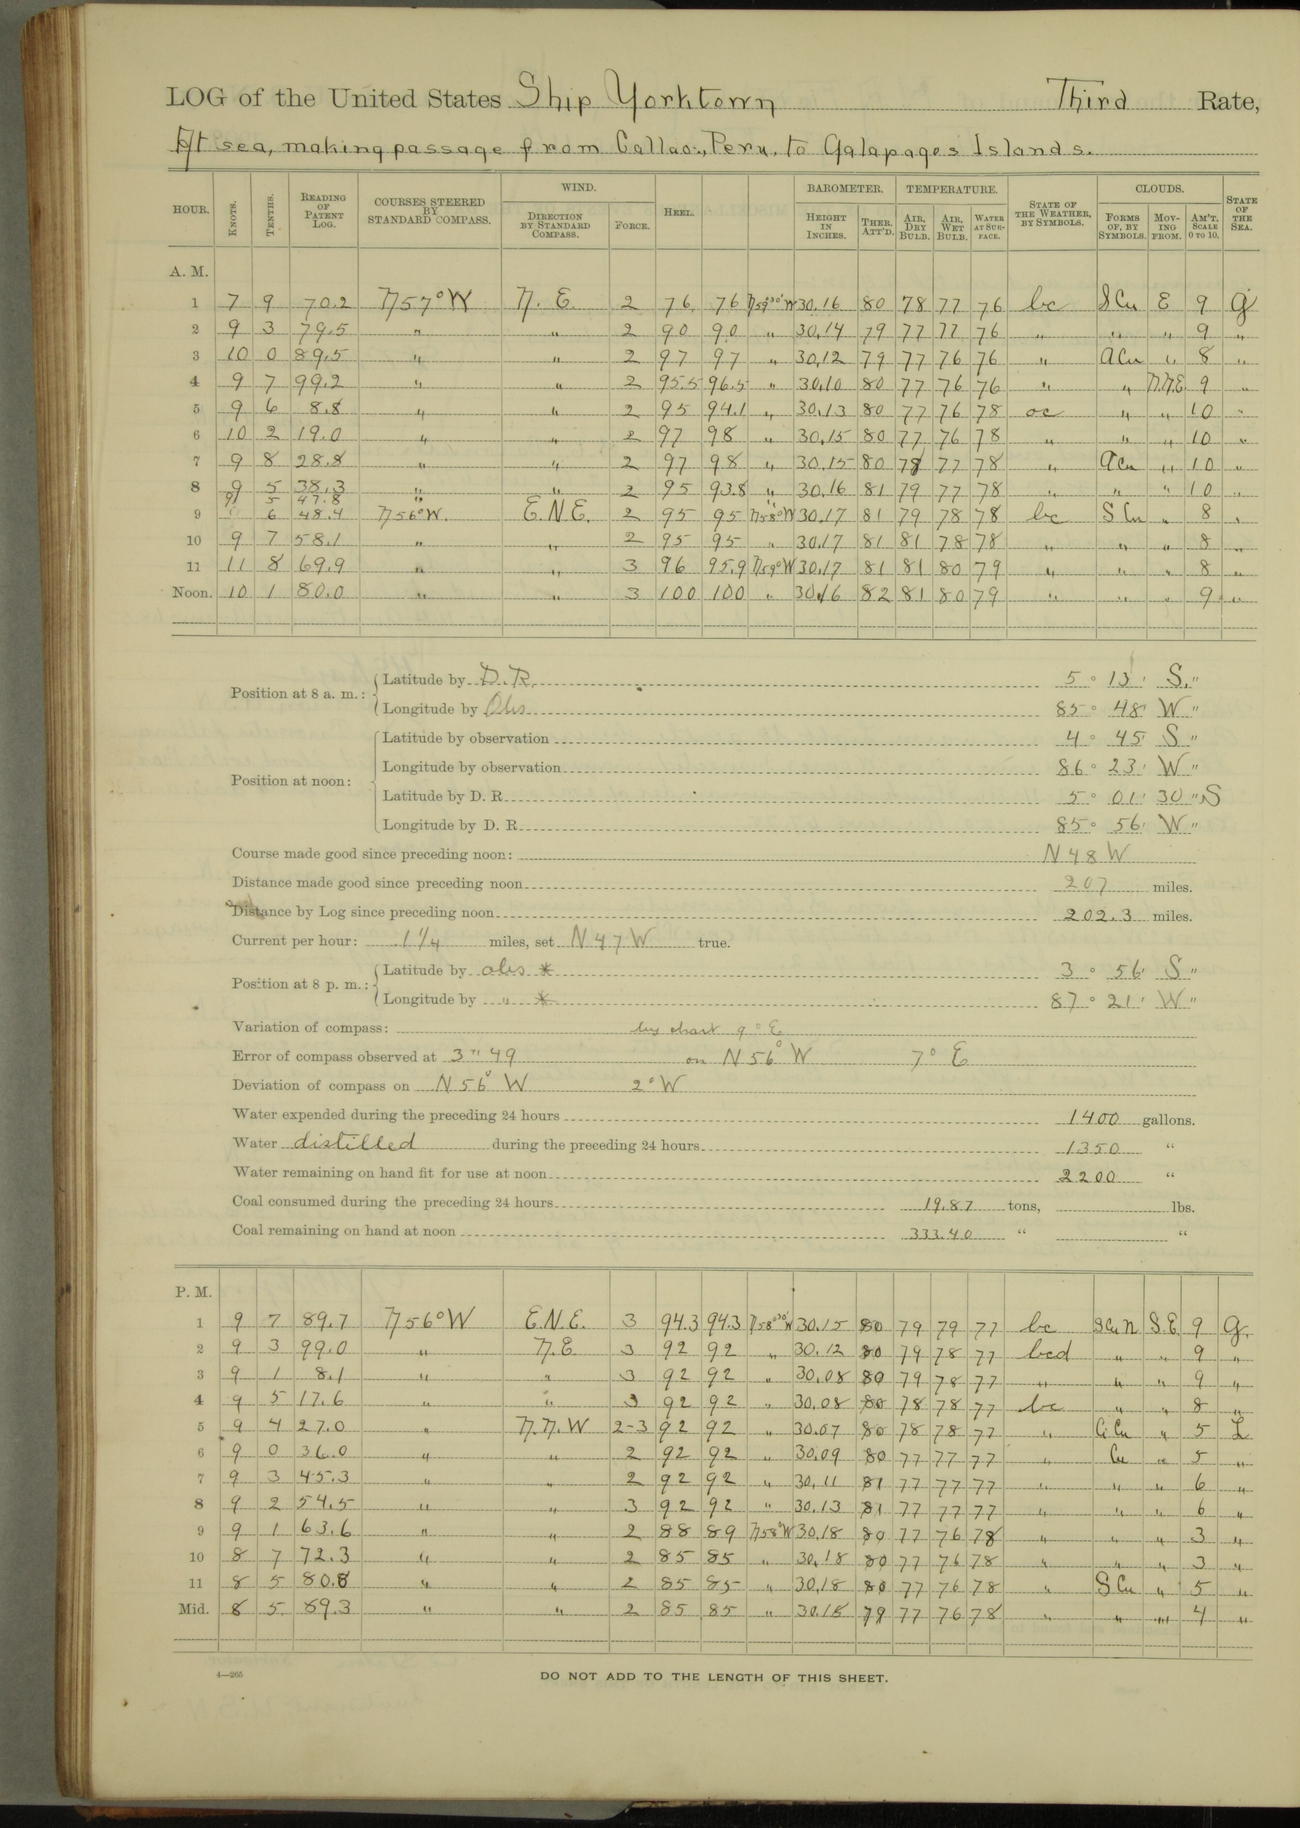 LOG of the United States Ship Yorktown Third Rate,
At sea, making passage from Callao, Peru, to Galapagos Islands.
HOUR. KNOTS. TENTHS. READING OF PATENT LOG. COURSES STEERED BY STANDARD COMPASS. WIND. DIRECTION BY STANDARD COMPASS. FORCE. HEEL. BAROMETER. HEIGHT IN INCHES. THER. ATT'D. TEMPERATURE. AIR, DRY BULB. AIR, WET BULB. WATER AT SURFACE. STATE OF THE WEATHER, BY SYMBOLS. CLOUDS. FORMS OF, BY SYMBOLS. MOVING FROM. AM'T. SCALE 0 TO 10. STATE OF THE SEA.
A. M.
1 7 9 70.2 N57°W N. E. 2 76 76 N59°30'W 30.16 80 78 77 76 bc SCu E 9 G
2 9 3 79.5 " " 2 90 90 " 30.14 79 77 77 76 " " " 9 "
3 10 0 89.5 " " 2 97 97 " 30.12 79 77 76 76 " ACu " 8 "
4 9 7 99.2 " " 2 95.5 96.5 " 30.10 80 77 76 76 " " N.N.E 9 "
5 9 6 8.8 " " 2 95 94.1 " 30.13 80 77 76 78 oc " " 10 "
6 10 2 19.0 " " 2 97 98 " 30.15 80 77 76 78 " " " 10 "
7 9 8 28.8 " " 2 97 98 " 30.15 80 78 77 78 " ACu " 10 "
8 9 5 38.3 " " 2 95 93.8 " 30.16 81 79 77 78 " " " 10 "
9 5 47.8 "
9 6 48.4 N56°W. E.N.E. 2 95 95 N58°W 30.17 81 79 78 78 bc SCu " 8 "
10 9 7 58.1 " " 2 95 95 " 30.17 81 81 78 78 " " " 8 "
11 11 8 69.9 " " 3 96 95.9 N59°W 30.17 81 81 80 79 " " " 8 "
Noon. 10 1 80.0 " " 3 100 100 " 30.16 82 81 80 79 " " " 9 "
Position at 8 a. m.: Latitude by D. R. 5° 13' S."
Longitude by Obs 85° 48' W"
Position at noon: Latitude by observation 4° 45' S"
Longitude by observation 86° 23' W"
Latitude by D. R. 5° 01' 30" S
Longitude by D. R. 85° 56' W"
Course made good since preceding noon: N 48 W
Distance made good since preceding noon 207 miles.
Distance by Log since preceding noon 202.3 miles.
Current per hour: 1 1/4 miles, set N 47 W true.
Position at 8 p. m.: Latitude by obs * 3° 56' S"
Longitude by " * 87° 21' W"
Variation of compass: by chart 9° E
Error of compass observed at 3" 49 on N 56° W 7° E
Deviation of compass on N 56° W 2° W
Water expended during the preceding 24 hours 1400 gallons.
Water distilled during the preceding 24 hours 1350 "
Water remaining on hand fit for use at noon 2200 "
Coal consumed during the preceding 24 hours 19.87 tons, lbs.
Coal remaining on hand at noon 333.40 " "
P. M.
1 9 7 89.7 N56°W E.N.E. 3 94.3 94.3 N58°30'W 30.15 80 79 79 77 bc SCuN S.E. 9 G.
2 9 3 99.0 " N.E 3 92 92 " 30.12 80 79 78 77 bcd " " 9 "
3 9 1 8.1 " " 3 92 92 " 30.08 80 79 78 77 " " " 9 "
4 9 5 17.6 " " 3 92 92 " 30.08 80 78 78 77 bc " " 8 "
5 9 4 27.0 " N.N.W 2-3 92 92 " 30.07 80 78 78 77 " CiCu " 5 L
6 9 0 36.0 " " 2 92 92 " 30.09 80 77 77 77 " Cu " 5 "
7 9 3 45.3 " " 2 92 92 " 30.11 81 77 77 77 " " " 6 "
8 9 2 54.5 " " 3 92 92 " 30.13 81 77 77 77 " " " 6 "
9 9 1 63.6 " " 2 88 89 N58°W 30.18 80 77 76 78 " " " 3 "
10 8 7 72.3 " " 2 85 85 " 30.18 80 77 76 78 " " " 3 "
11 8 5 80.8 " " 2 85 85 " 30.18 80 77 76 78 " SCu " 5 "
Mid. 8 5 89.3 " " 2 85 85 " 30.15 79 77 76 78 " " " 4 "
4—265 DO NOT ADD TO THE LENGTH OF THIS SHEET.